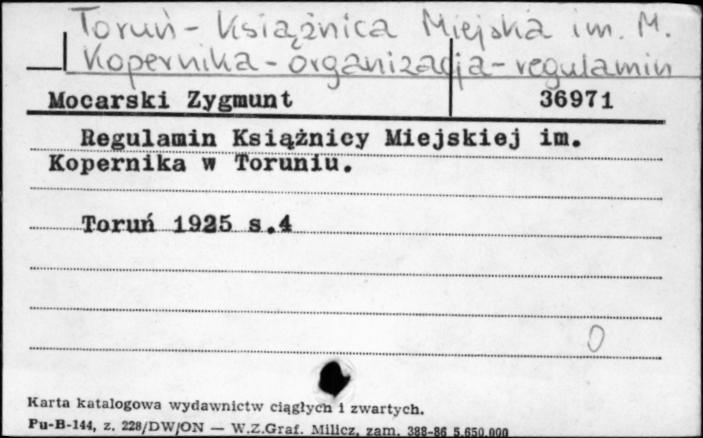 Toruń - Książnica Miejska im. M.
Kopernika - organizacja - regulamin
Mocarski Zygmunt 36971
Regulamin Książnicy Miejskiej im.
Kopernika w Toruniu.
Toruń 1925 s.4
0
Karta katalogowa wydawnictw ciągłych i zwartych.
Pu-B-144, z. 228/DW/ON — W.Z.Graf. Milicz, zam. 388-86 5.650.000